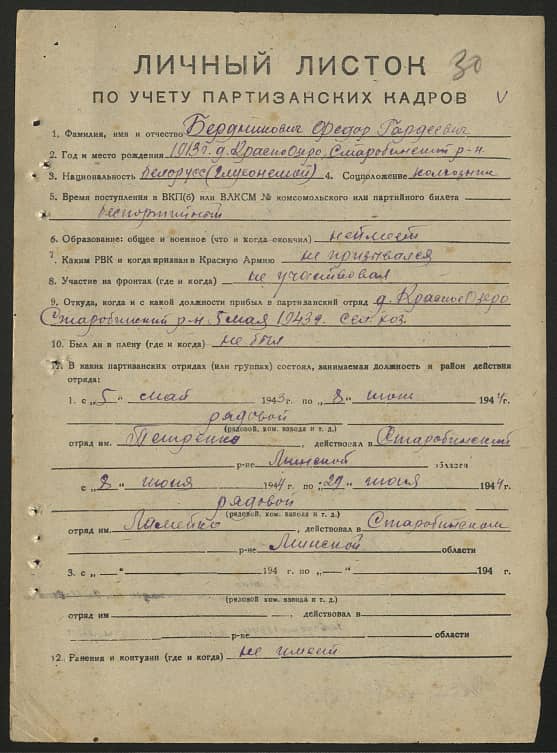 ЛИЧНЫЙ ЛИСТОК 30
ПО УЧЕТУ ПАРТИЗАНСКИХ КАДРОВ V
1. Фамилия, имя и отчество Бердникович Федор Гордеевич
2. Год и место рождения 1913 г. д. Красно Озеро, Старобинский р-н
3. Национальность белорусс 4. Соцположение колхозник
5. Время поступления в ВКП(б) или ВЛКСМ № комсомольского или партийного билета
беспартийный
6. Образование: общее и военное (что и когда окончил) не имеет
7. Каким РВК и когда призван в Красную Армию не призывался
8. Участие на фронтах (где и когда) не участвовал
9. Откуда, когда и с какой должности прибыл в партизанский отряд д. Красное Озеро
Старобинский р-н 5 мая 1943 г. сел. хоз.
10. Был ли в плену (где и когда) не был
11. В каких партизанских отрядах (или группах) состоял, занимаемая должность и район действия
отряда:
1. с „5" май 1943 г. по „8 июн 1944 г.
рядовой
(рядовой, ком. взвода и т. д.)
отряд им. Петренко, действовал в Старобинский
р-не Минской области
с „8" июня 1944 г. по „29" июня 1944 г.
рядовой
(рядовой, ком. взвода и т. д.)
отряд им. действовал в Старобинском
р-не Минской области
3. с „—" 194 г. по „—" 194 г.
(рядовой, ком. взвода и т. д.)
отряд им. действовал в
р-не области
12. Ранения и контузии (где и когда) не имеет